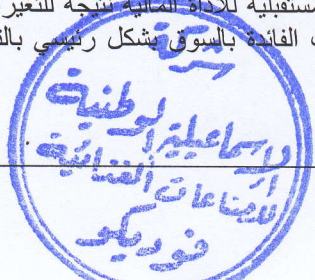 مستقبلية للأداة المالية نتيجة للتغير
الفائدة بالسوق بشكل رئيسي
شركة
الاسماعيلية الوطنية
للصناعات الغذائية
فوديكو